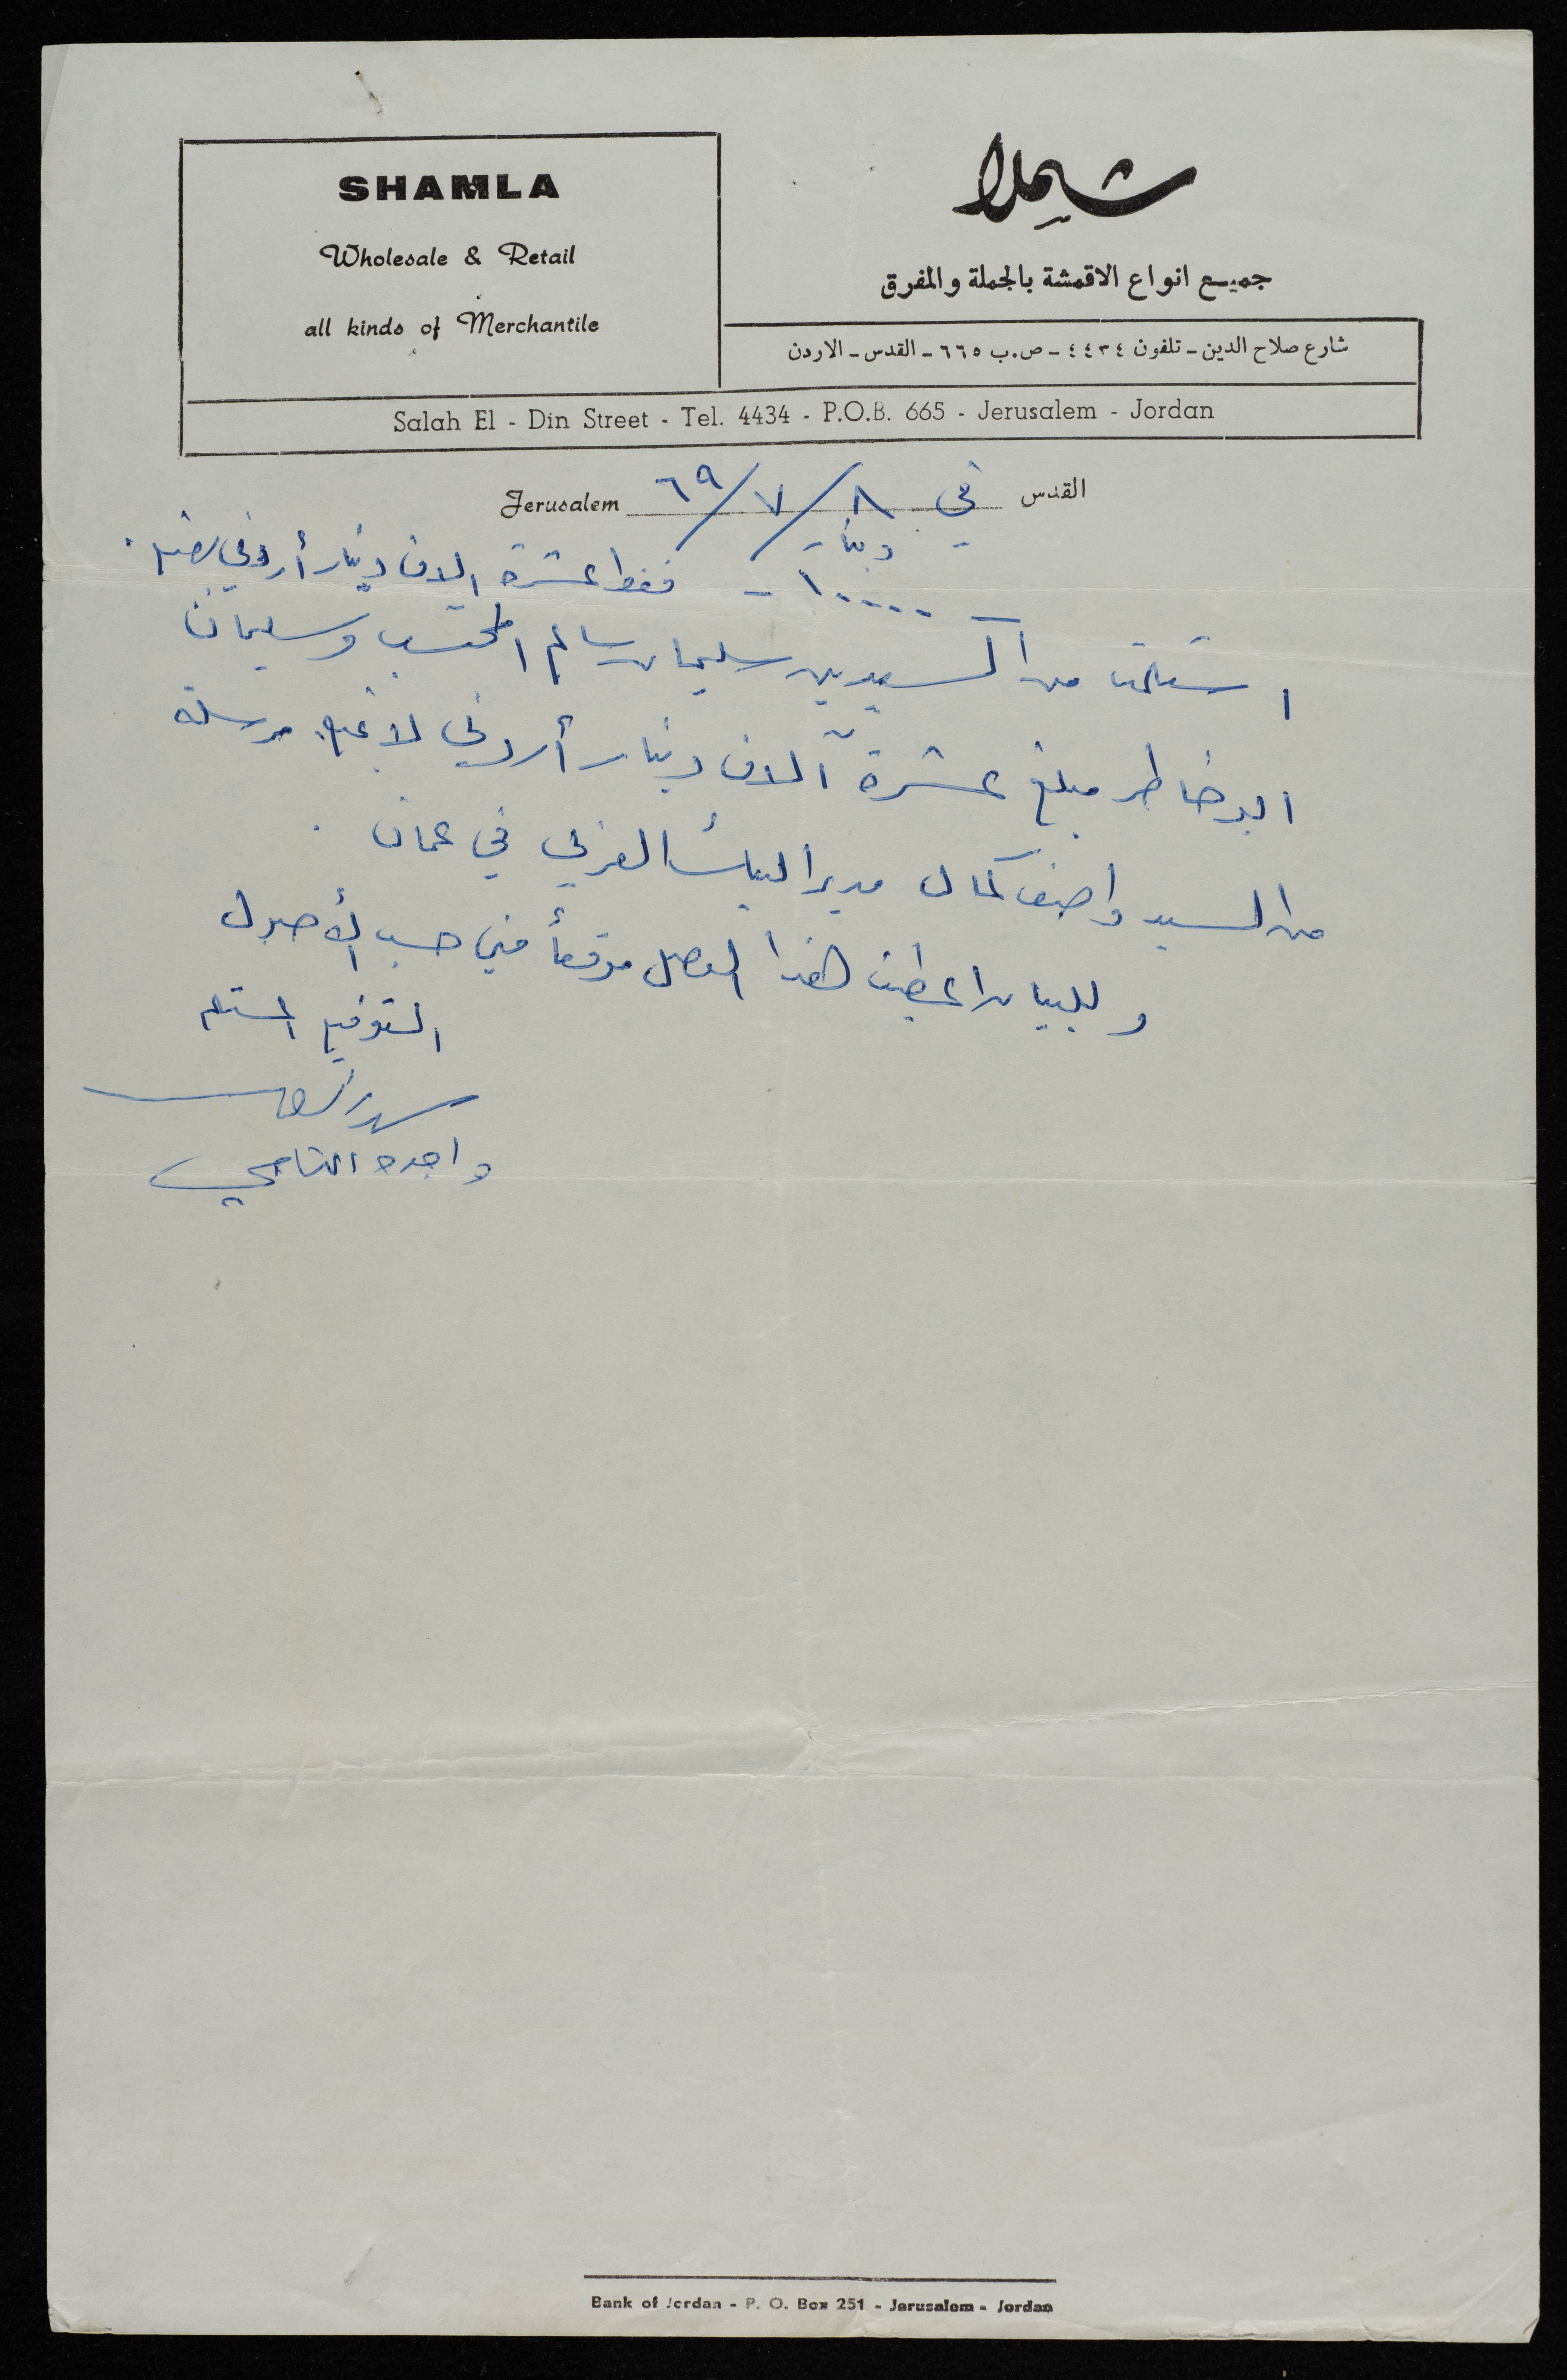 SHAMLA
Wholesale & Retail
all kinds of Merchantile
شيملا
جميع انواع الاقمشة بالجملة والمفرق
شارع صلاح الدين - تلفون ٤٤٣٤ - ص.ب ٦٦٥ - القدس - الاردن
Salah El - Din Street - Tel. 4434 - P.O.B. 665 - Jerusalem - Jordan
القدس في ٨/٧/٦٩ Jerusalem
دينار
فقط عشرة الاف دينار أردني
استلمت من السيدين سليمان سالم المحتسب وسليمان
ابو خاطر مبلغ عشرة آلاف دينار أردني لا غير مرسلة
من السيد واصف كمال مدير البنك العربي في عمان .
وللبيان اعطيت هذا الوصل موقعاً مني حسب الأصول
التوقيع المستلم
Bank of Jordan - P. O. Box 251 - Jerusalem - Jordan